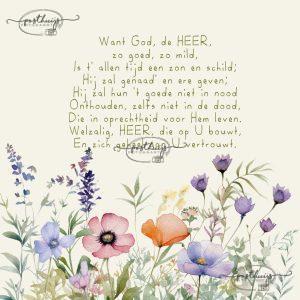 posthuijs
Want God, de HEER,
zo goed, zo mild,
Is t' allen tijd een zon en schild;
Hij zal genaad' en ere geven;
Hij zal hun 't goede niet in nood
Onthouden, zelfs niet in de dood,
Die in oprechtheid voor Hem leven.
Welzalig, HEER, die op U bouwt,
En zich geheel aan U vertrouwt.